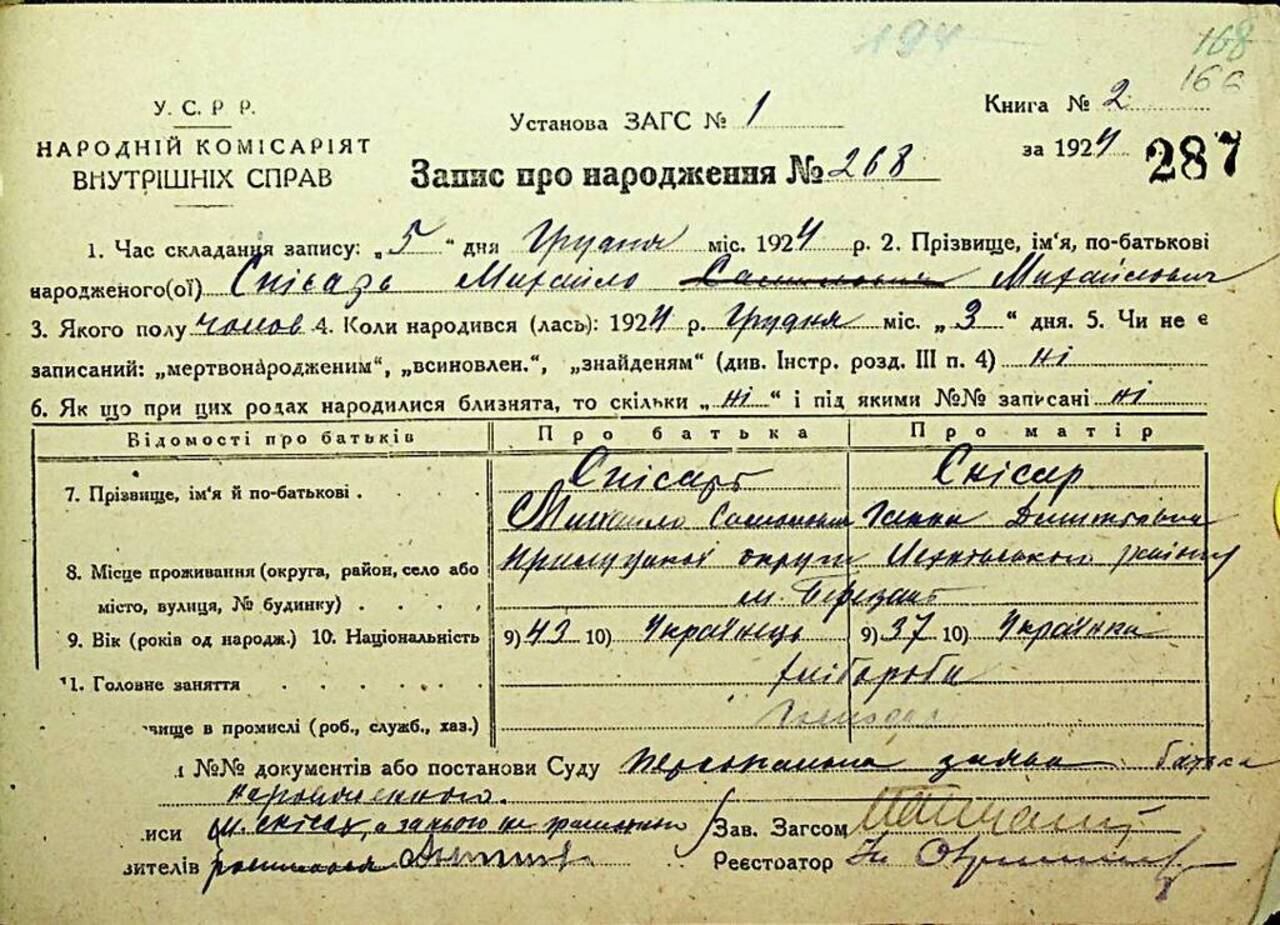 168
166
У. С. Р Р.
НАРОДНІЙ КОМІСАРІЯТ
ВНУТРІШНІХ СПРАВ
Установа ЗАГС № 1
Книга № 2
за 1924
287
Запис про народження № 268
1. Час складання запису: „5" дня Грудня міс. 1924 р. 2. Прізвище, ім'я, по-батькові
народженого(ої) Снісарь Михайло Михайлович
3. Якого полу чолов 4. Коли народився (лась): 1924 р. Грудня міс. „3" дня. 5. Чи не є
записаний: „мертвонародженим", „всиновлен.", „знайденям" (див. Інстр. розд. III п. 4) ні
6. Як що при цих родах народилися близнята, то скільки „ні" і під якими №№ записані ні
Відомості про батьків Про батька Про матір
7. Прізвище, ім'я й по-батькові . . . . Снісарь Снісар
Михайло Ганна Дмитрівна
8. Місце проживання (округа, район, село або Прилуцької округи району
місто, вулиця, № будинку) . . . . м. Березань
9. Вік (років од народж.) 10. Національність 9) 43 10) Українець 9) 37 10) Українка
1. Головне заняття . . . . . . хлібороби
вище в промислі (роб., служб., хаз.)
№№ документів або постанови Суду персональна заява батька
народженного.
иси М. Снісар, а за нього не грамотного Зав. Загсом
зителів росписался Реєстратор